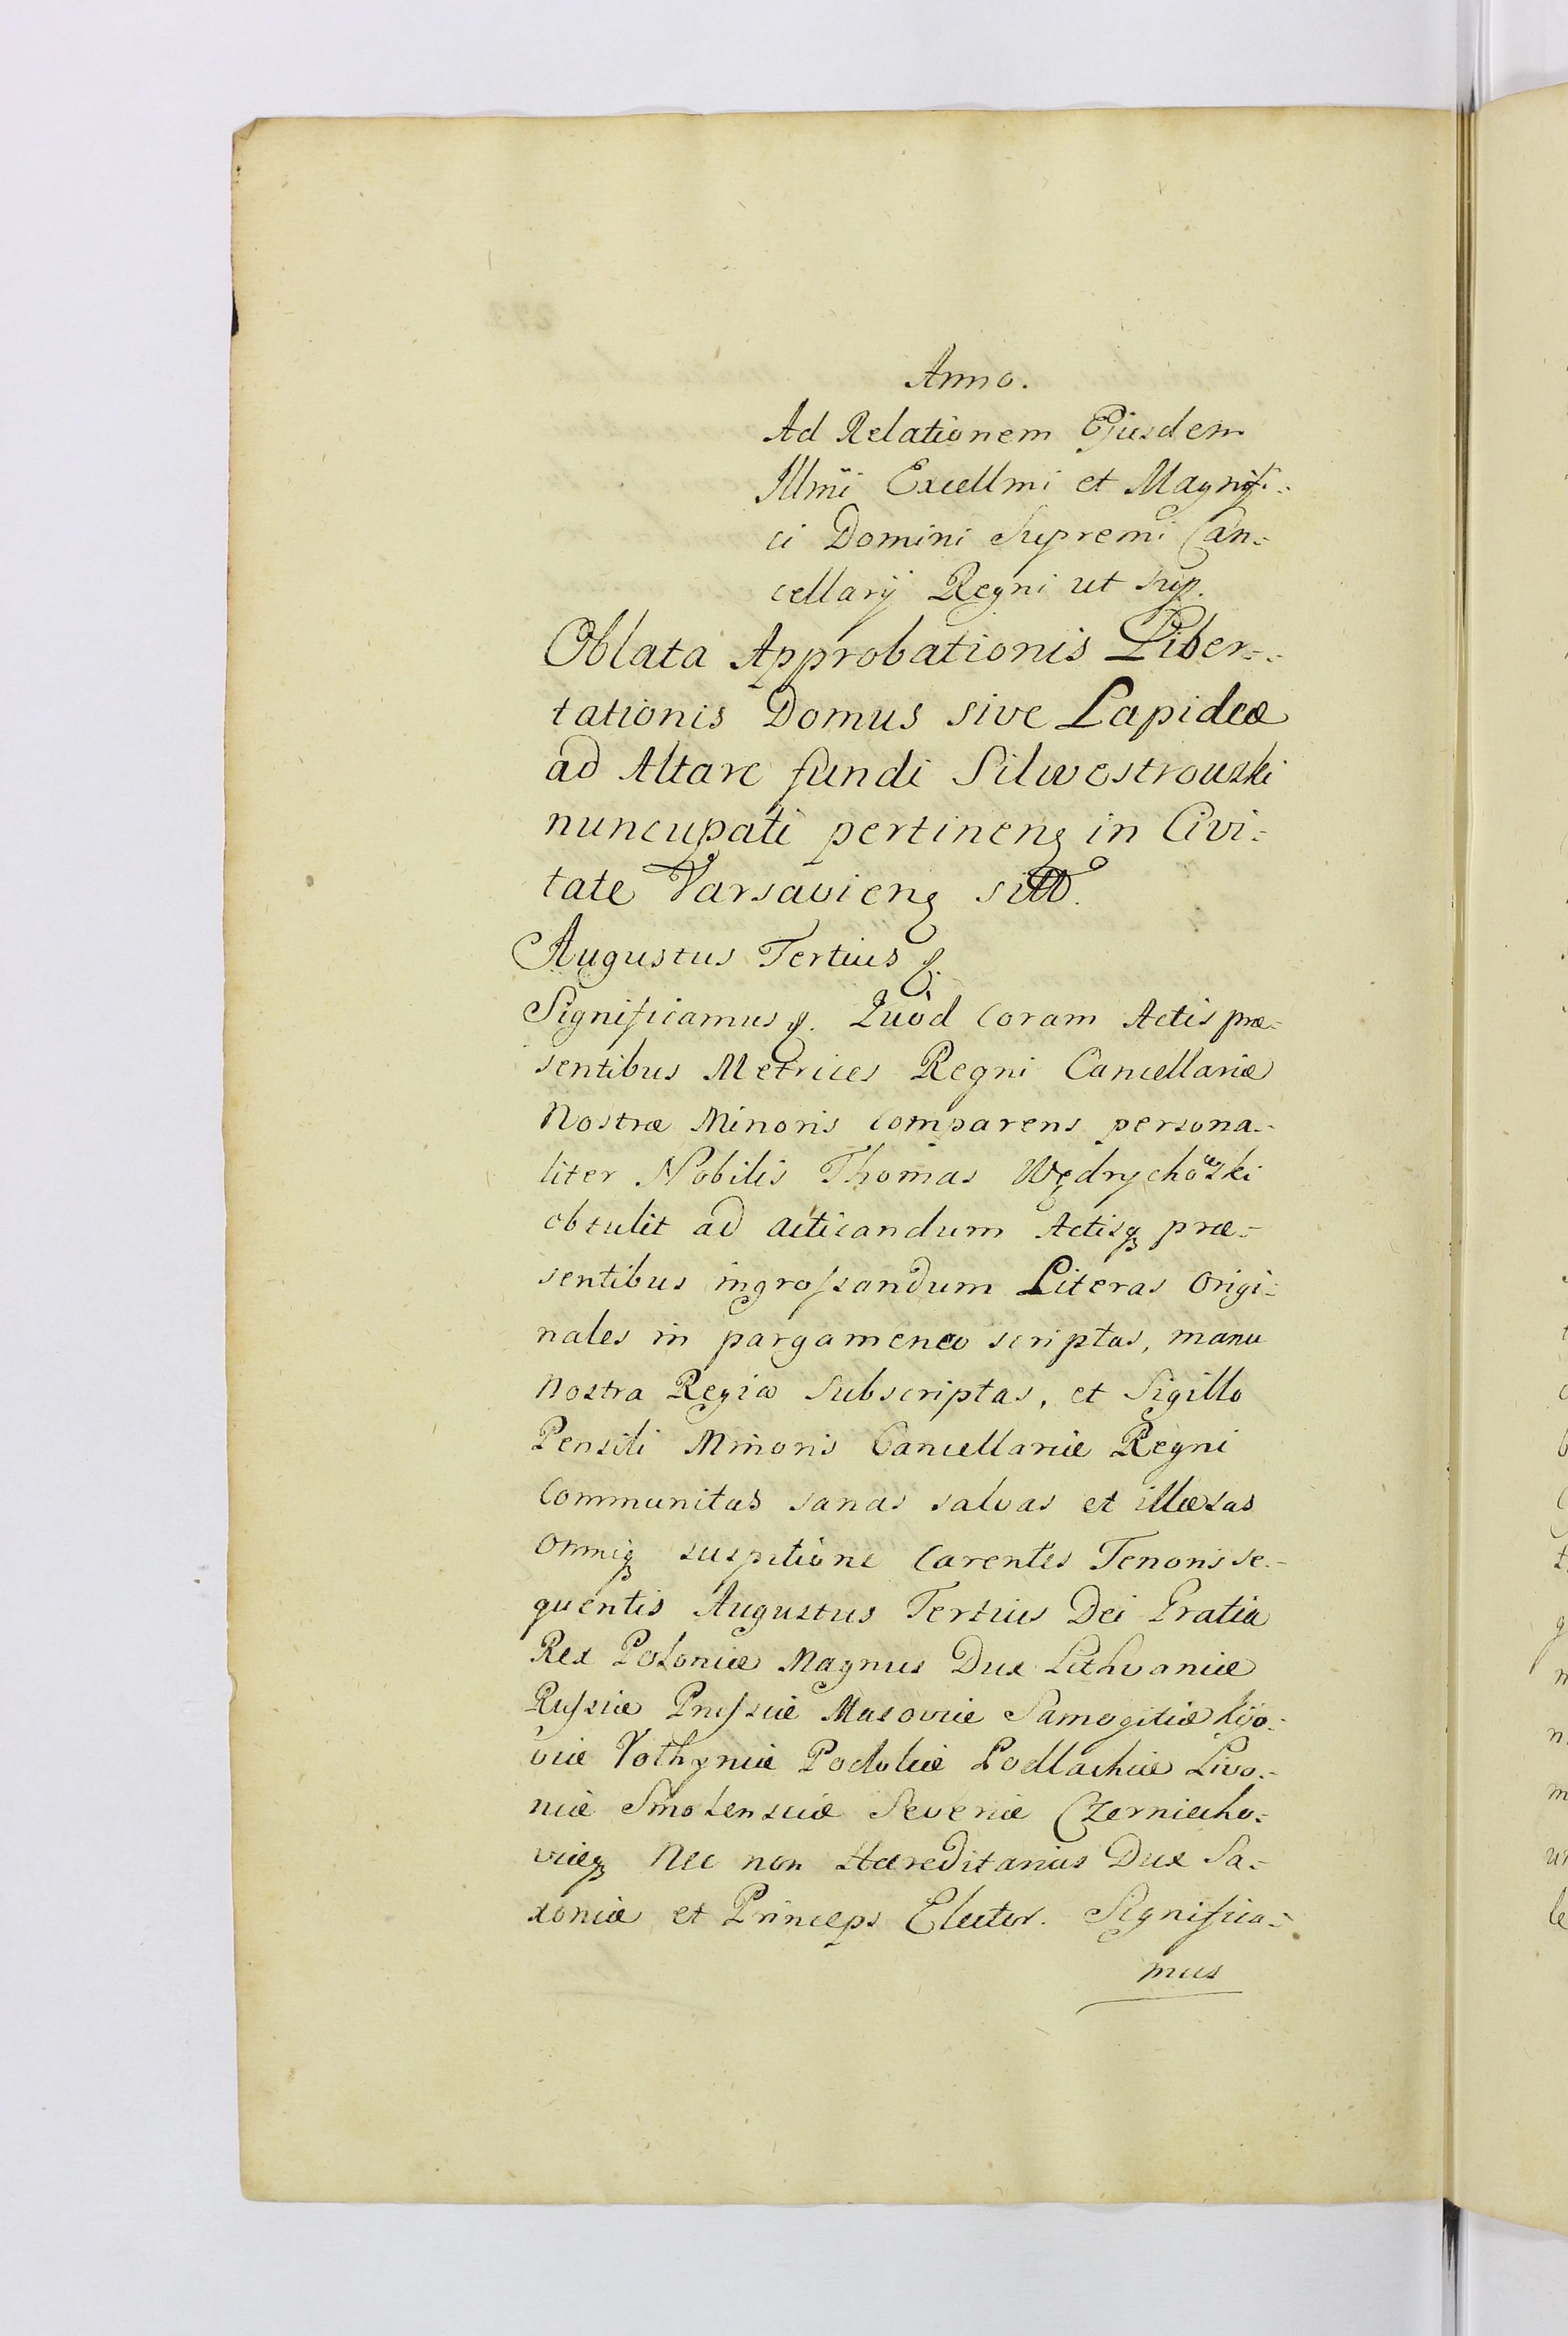 Anno.
Ad Relationem Ejusdem
Illmi Excellmi et Magnifi=
ci Domini Supremi Can=
cellarij Regni ut sup.
Oblata Approbationis Liber=
tationis Domus sive Lapideæ
ad Altare fundi Silwestrowski
nuncupati pertinenꝫ in Civi=
tate Varsavienꝫ
Augustus Tertius
Significamus Quòd coram Actis præ=
sentibus Metrices Regni Cancellariæ
Nostræ Minoris comparens persona=
liter Nobilis Thomas Wędrychowski
obtulit ad acticandum Actisqꝫ præ=
sentibus ingrossandum Literas origi=
nales in pargameno scriptas, manu
Nostra Regia Subscriptas, et Sigillo
Pensili Minoris Cancellariæ Regni
Communitas sanas salvas et illæsas
omniqꝫ suspitione Carentes Tenoris se=
quentis Augustus Tertius Dei Gratia
Rex Poloniæ Magnus Dux Lithvaniæ
Russiæ Prussiæ Masoviæ Samogitiæ Kijo=
viæ Volhyniæ Podoliæ Podlachiæ Livo=
niæ Smolensciæ Severiæ Czerniecho=
viæqꝫ Nec non Hæreditarius Dux Sa=
xoniæ et Princeps Elector. Significa=
mus